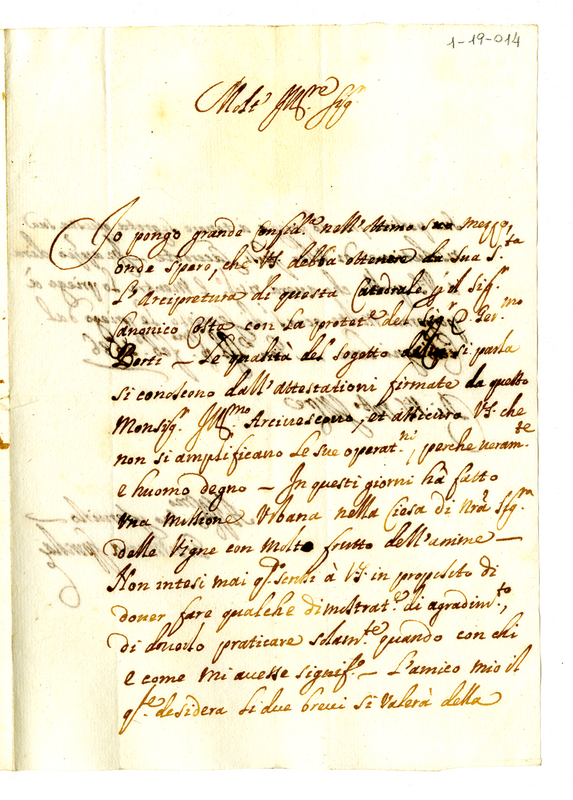 1-19-014
Molt' Ill.re Sig.r
Io pongo grande Confid.a nell'ottimo suo mezzo,
onde spero, che VS. debba ottenere da sua S.ta
L'Arcipretura di questa Catedrale p il Sig.r
Canonico Costa con la protet.e del Sig.r
Berti – Le qualità del sogetto di si parla
si conoscono dall'attestationi firmate da questo
Monsig.r Ill.mo Arcivescovo, et assicuro VS. che
non si amplificano le sue operat.ni, perche veram.te
e huomo degno – In questi giorni hà fatto
Una missione Urbana nella Ciesa di Nrã Sig.ra
delle Vigne con molto frutto dell'anime –
Non intesi mai q.do scrissi à VS. in proposito di
dover fare qualche dimostrat.e di agradim.to,
di doverlo praticare solam.te quando con chi
e come mi avesse signif.o – L'amico mio il
q.le desidera li due brevi si valerà della